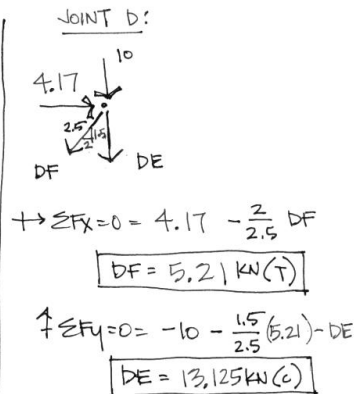 JOINT D:
10
4.17
2.5
1.5
2
DF
DE
+→ ΣFx=0= 4.17 - 2/2.5 DF
DF = 5.21 KN(T)
+↑ ΣFy=0= -10 - 1.5/2.5 (5.21) - DE
DE = 13,125KN(C)